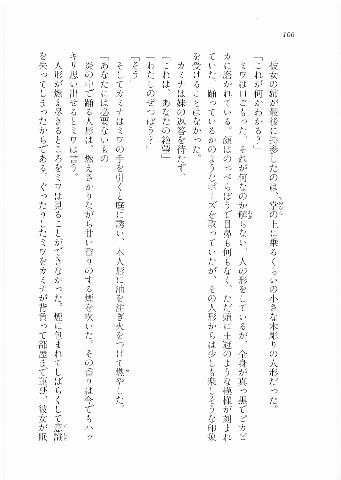 166
彼女の姉が最後に持参したのは、掌の上に乗るくらいの小さな木彫りの人形だった。
「これが何かわかる?」
ミワは口ごもった。それが何なのか解らない。人の形をしているが、全身が真っ黒でピカピ
カに磨かれている。顔はのっぺらぼうで目鼻も何もなく、ただ頭に王冠のような模様が刻まれ
ていた。踊っているかのようなポーズを取っていたが、その人形からは少しも楽しそうな印象
を受けることはなかった。
カミナは妹の返答を待たず、
「これは、あなたの絶望」
「わたしのぜつぼう?」
「そう」
そしてカミナはミワの手を引くと庭に誘い、木人形に油を注ぎ火をつけて燃やした。
「あなたには必要ないもの」
炎の中で踊る人形は、燃えさかりながら甘い香りのする煙を吹いた。その香りは今でもハッ
キリ思い出せるとミワは言う。
人形が燃え尽きるところをミワは見ることができなかった。煙に包まれてしばらくして意識
を失ってしまったからである。ぐったりしたミワをカミナが背負って部屋まで運び、彼女が眠